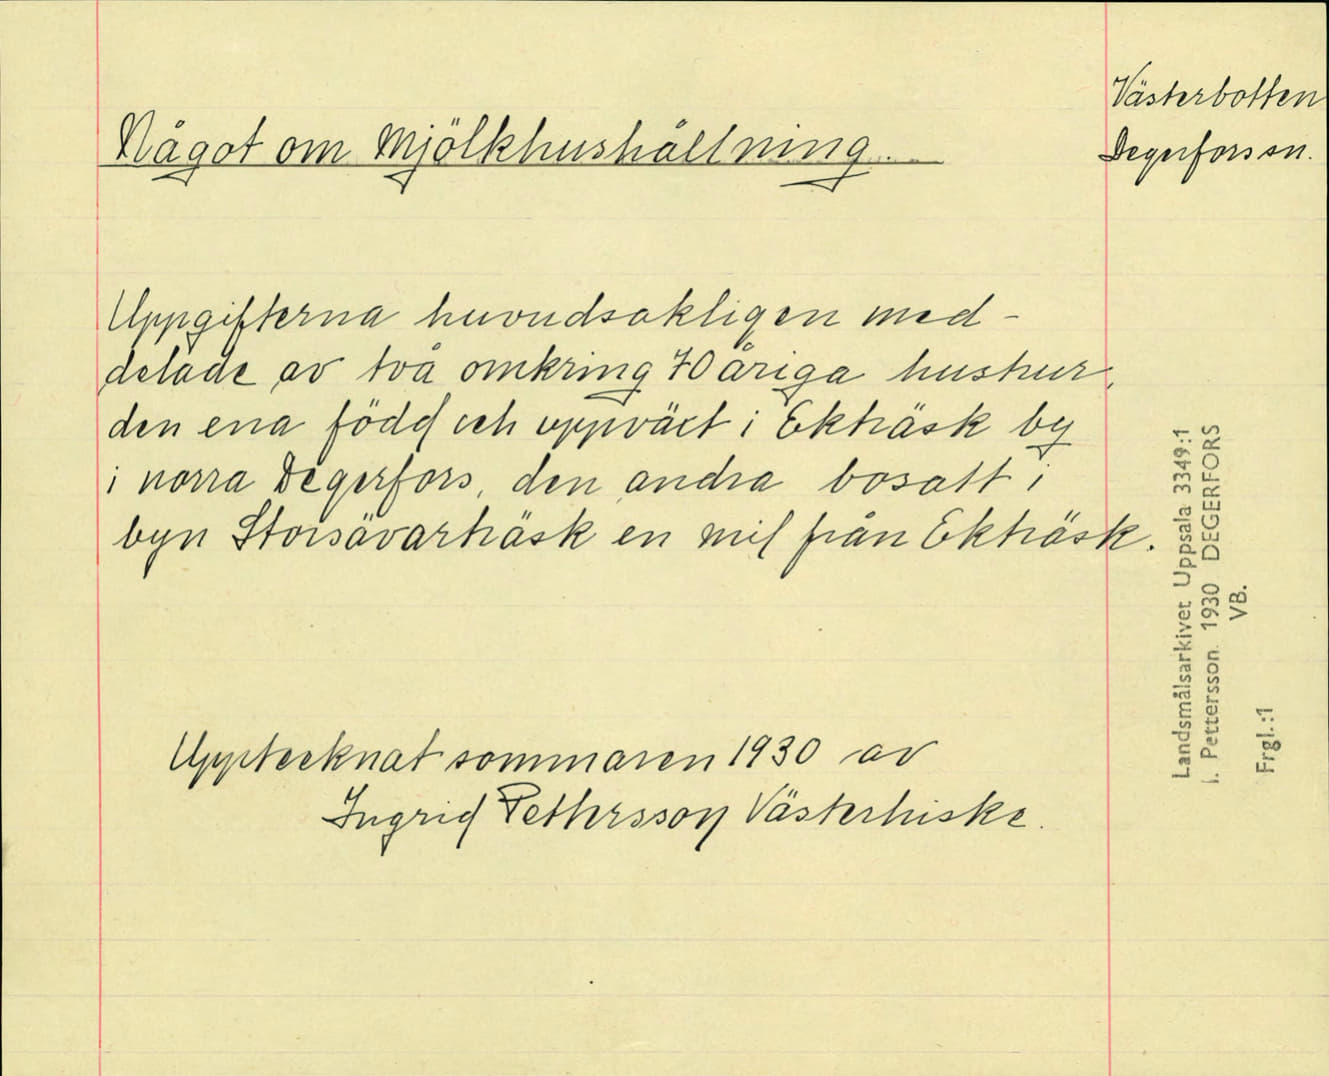 Västerbotten
Degerfors sn.
Något om Mjölkhushållning.
Uppgifterna huvudsakligen med-
delade av två omkring 70 åriga hustrur,
den ena född och uppväxt i Ekträsk by
i norra Degerfors, den andra bosatt i
byn Storsävarträsk en mil från Ekträsk.
Upptecknat sommaren 1930 av
Ingrid Pettersson Västerhiske.
Landsmålsarkivet Uppsala 3349:1
I. Pettersson. 1930 DEGERFORS
VB.
Frgl.:1